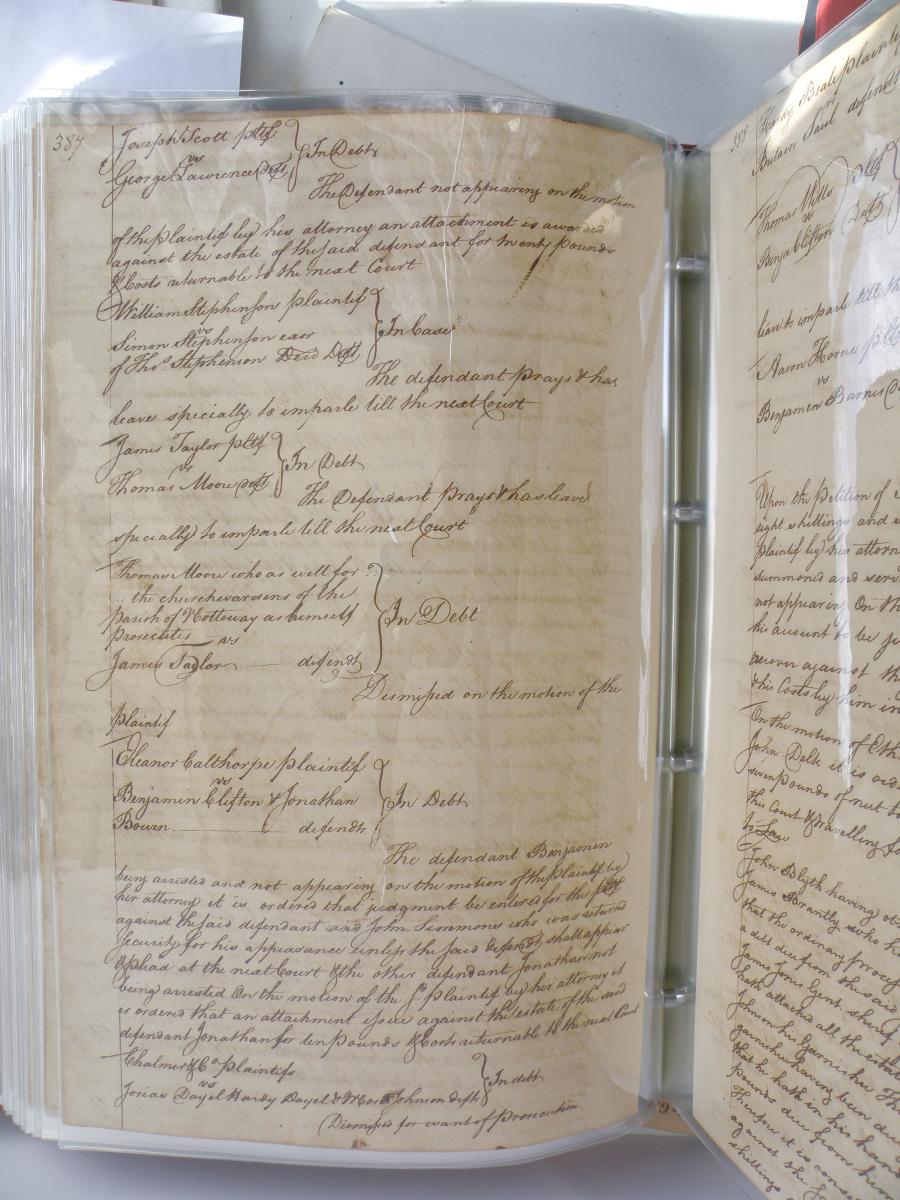 387
Joseph Scott pltf
vs
George Lawrence deft
In Debt
The Defendant not appearing on the motion
of the plaintif by his attorney an attachment is awarded
against the estate of the said defendant for twenty pounds
& Costs returnable to the next Court
William Stephenson plaintif
vs
Simon Stephenson exor
of Thos. Stephenson Decd Deft
In Case
The defendant prays & has
leave specially to imparle till the next Court
James Taylor pltf
vs
Thomas Moore deft
In Debt
The Defendant prays & has leave
specially to imparle till the next Court
Thomas Moore who as well for
the churchwardens of the
parish of Nottoway as himself
prosecutes
vs
James Taylor defendt
In Debt
Dismissed on the motion of the
plaintif
Eleanor Calthorpe plaintif
vs
Benjamin Clifton & Jonathan
Bowen defendts
In Debt
The defendant Benjamin
being arrested and not appearing on the motion of the plaintif by
her attorney it is ordered that judgment be entered for the pltf
against the said defendant and John Simmons who was returnd
Security for his appearance unless the said defendt shall appear
& plead at the next Court & the other defendant Jonathan not
being arrested On the motion of the sd. plaintif by her attorney it
is ordered that an attachment issue against the estate of the said
defendant Jonathan for ten pounds & Costs returnable to the next Court
Chalmers & Co plaintifs
vs
Josias Dayel Hardy Dayel & Johnson defts
In debt
Dismissed for want of Prosecution
388
Hardy Beale plainti
vs
Britain Saul defend
Thomas Wills Pltf
vs
Benja Clifton Deft
leave to imparle till th
Aaron Horne pltf
vs
Benjamen Barnes
Upon the Petition of
eight shillings and
plaintif by his attorn
summoned and serv
not appearing On th
his account to be ju
recover against th
& his Costs by him in
On the motion of Eth
John Delk it is ord
seven pounds of nett to
this Court & travelling fo
to Law
John Blyth having ob
James Brantly who h
that the ordinary proce
a debt due from the said
James Jones Gent sherif
hath attached all the estate
Johnson his Garnishee Th
garnishee having been du
that he hath in his hand
pounds due from him
Therefore it is cons
against the
shillings